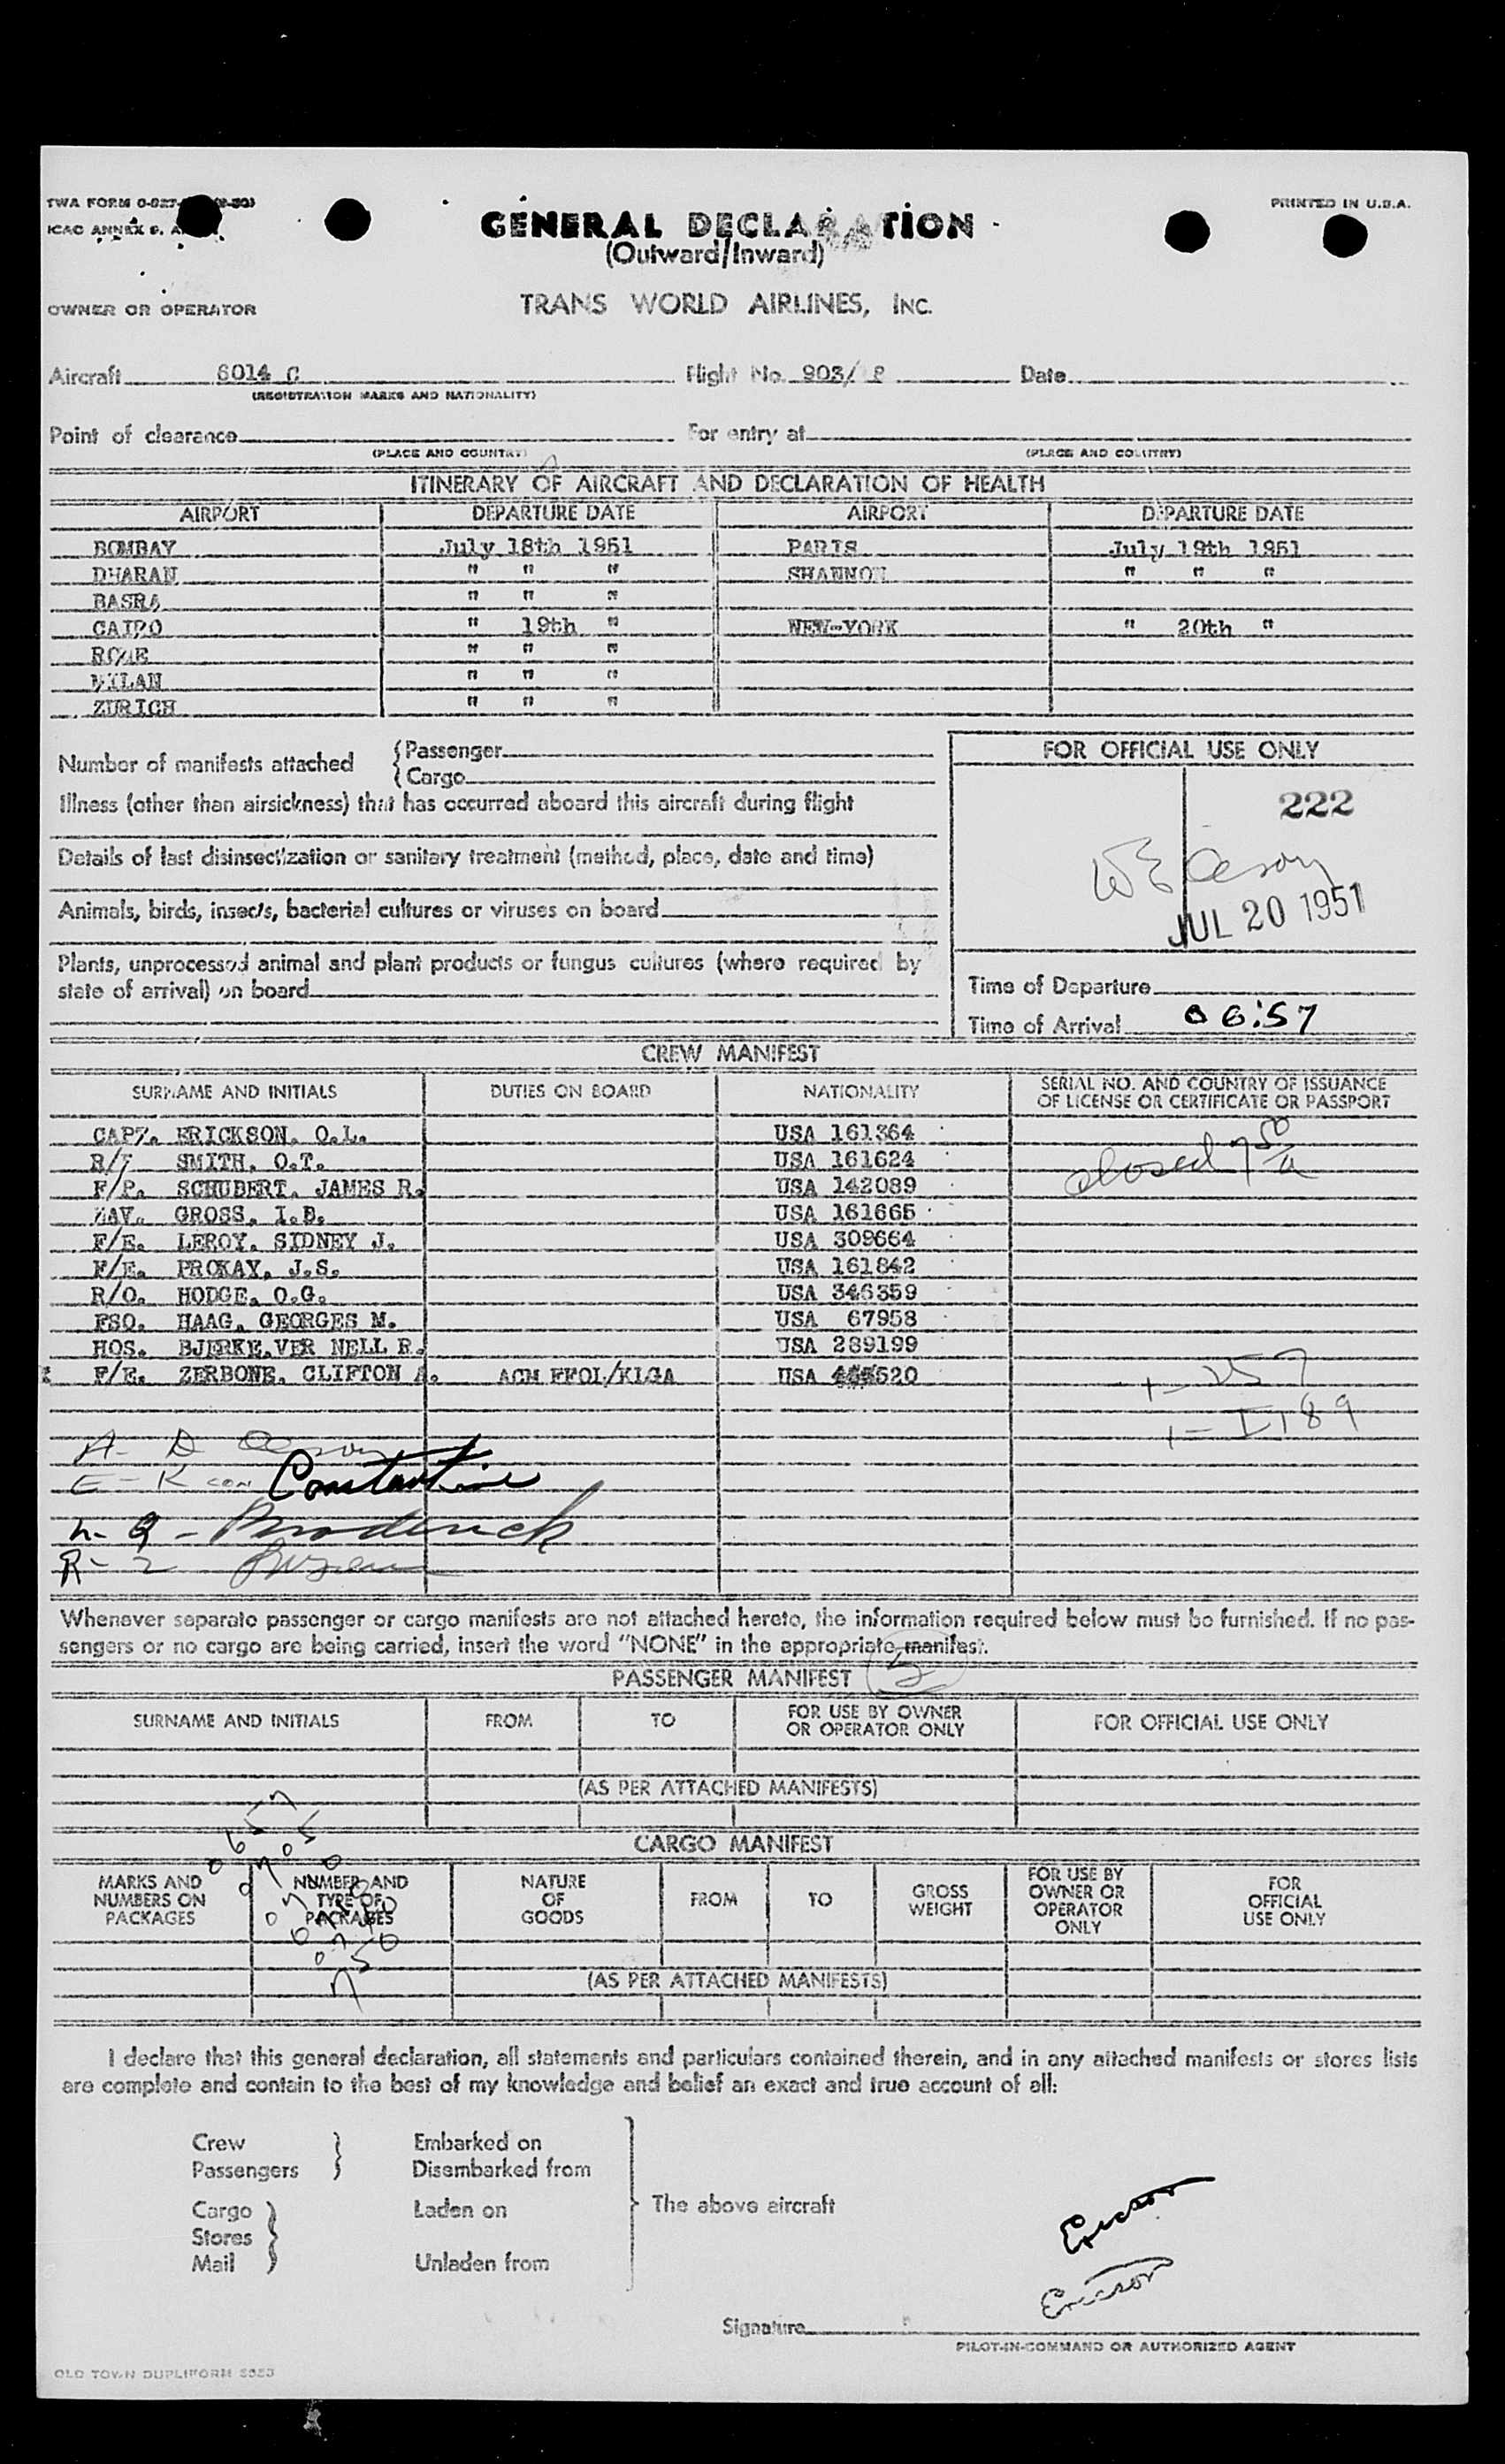 TWA FORM
PRINTED IN U.S.A.
ICAO ANNEX 9.
GENERAL DECLARATION
(Outward/Inward)
OWNER OR OPERATOR TRANS WORLD AIRLINES, INC.
Aircraft 6014 C Flight No. 903/ Date
(REGISTRATION MARKS AND NATIONALITY)
Point of clearance For entry at
(PLACE AND COUNTRY) (PLACE AND COUNTRY)
ITINERARY OF AIRCRAFT AND DECLARATION OF HEALTH
AIRPORT DEPARTURE DATE AIRPORT DEPARTURE DATE
BOMBAY July 18th 1951 PARIS July 19th 1951
DHARAN " " " SHANNON " " "
BASRA " " "
CAIRO " 19th " NEW-YORK " 20th "
ROME " " "
MILAN " " "
ZURICH " " "
Number of manifests attached { Passenger
{ Cargo
FOR OFFICIAL USE ONLY
222
JUL 20 1951
Illness (other than airsickness) that has occurred aboard this aircraft during flight
Details of last disinsectization or sanitary treatment (method, place, date and time)
Animals, birds, insects, bacterial cultures or viruses on board
Plants, unprocessed animal and plant products or fungus cultures (where required by
state of arrival) on board
Time of Departure
Time of Arrival 06:57
CREW MANIFEST
SURNAME AND INITIALS DUTIES ON BOARD NATIONALITY SERIAL NO. AND COUNTRY OF ISSUANCE
OF LICENSE OR CERTIFICATE OR PASSPORT
CAPT. ERICKSON, O.L. USA 161364
SMITH, O.T. USA 161624 closed 7 50/a
F/P. SCHUBERT, JAMES R. USA 142089
NAV. GROSS, I.B. USA 161665
F/E. LEROY, SIDNEY J. USA 309664
F/E. PROKAY, J.S. USA 161842
R/O. HODGE, O.G. USA 346359
FSO. HAAG, GEORGES M. USA 67958
HOS. BJERKE,VER NELL R. USA 289199
F/E. ZERBONE, CLIFTON A. ACM EFOL/KLGA USA 520
1- 257
1- I 189
A- D
E- K con Constantine
L- Q - Broderick
R- Z
Whenever separate passenger or cargo manifests are not attached hereto, the information required below must be furnished. If no pas-
sengers or no cargo are being carried, insert the word "NONE" in the appropriate manifest.
PASSENGER MANIFEST
SURNAME AND INITIALS FROM TO FOR USE BY OWNER
OR OPERATOR ONLY FOR OFFICIAL USE ONLY
(AS PER ATTACHED MANIFESTS)
CARGO MANIFEST
MARKS AND
NUMBERS ON
PACKAGES
NUMBER AND
TYPE OF
PACKAGES
NATURE
OF
GOODS
FROM
TO
GROSS
WEIGHT
FOR USE BY
OWNER OR
OPERATOR
ONLY
FOR
OFFICIAL
USE ONLY
0657
0705
750
(AS PER ATTACHED MANIFESTS)
I declare that this general declaration, all statements and particulars contained therein, and in any attached manifests or stores lists
are complete and contain to the best of my knowledge and belief an exact and true account of all:
Crew } Embarked on
Passengers } Disembarked from
Cargo } Laden on The above aircraft
Stores
Mail } Unladen from
Ericson
Ericson
Signature
PILOT-IN-COMMAND OR AUTHORIZED AGENT
OLD TOWN DUPLIFORM